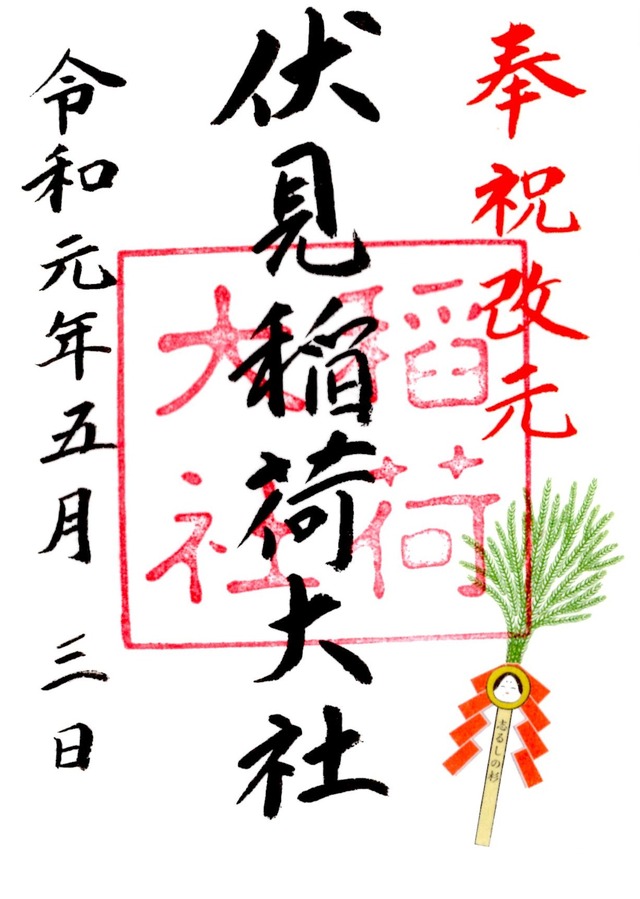 奉祝改元
伏見稲荷大社
令和元年五月 三日
稲荷
大社
志るしの杉